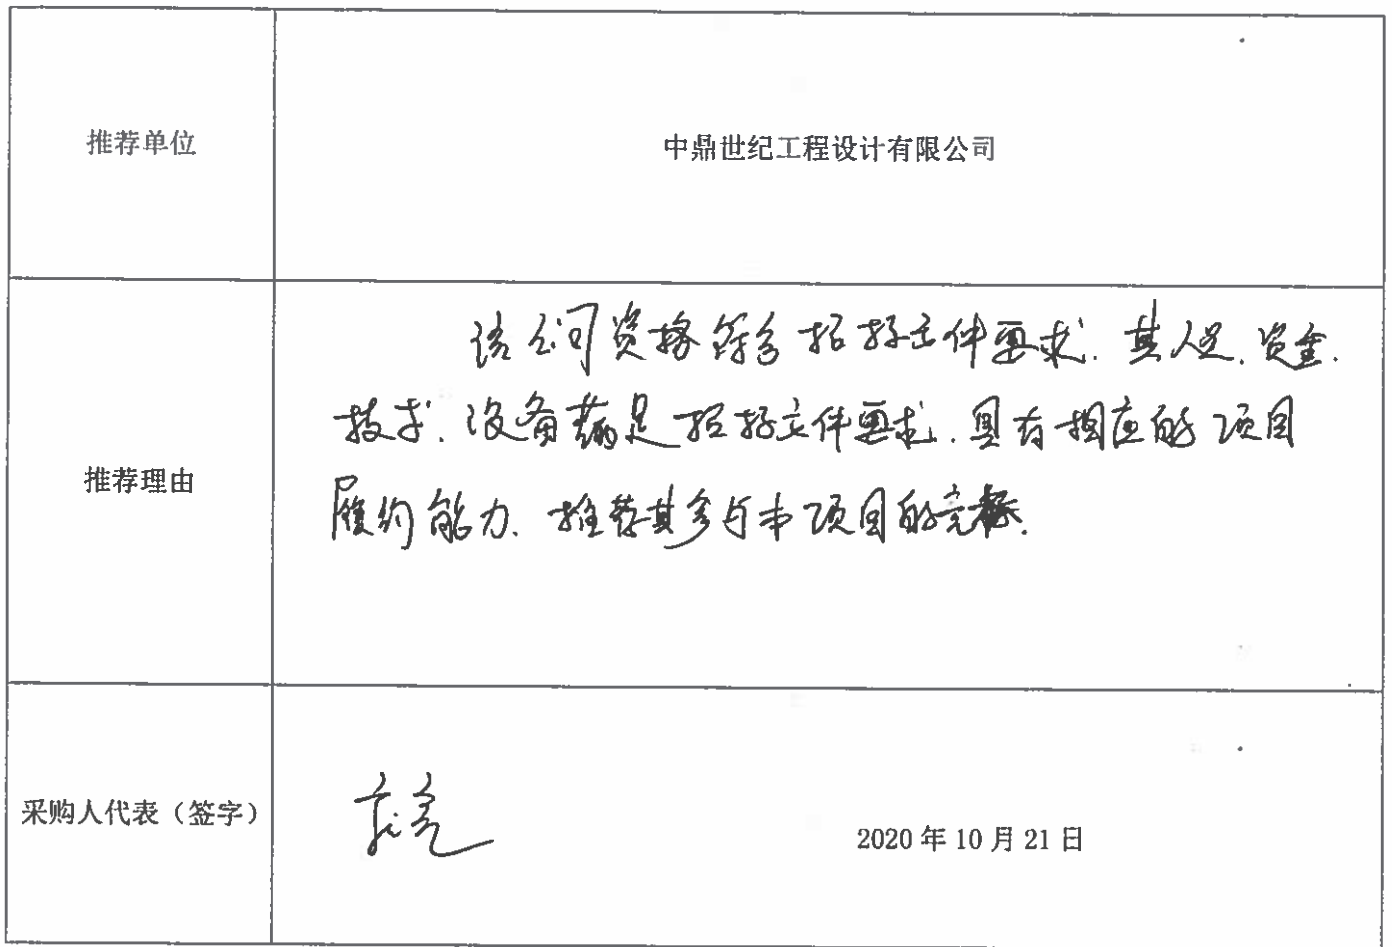 推荐单位
中鼎世纪工程设计有限公司
推荐理由
该公司资格符合招标文件要求.其人员.资金.
技术.设备满足招标文件要求.具有相应的项目
履约能力.推荐其参与本项目的竞标.
采购人代表（签字）
2020年10月21日